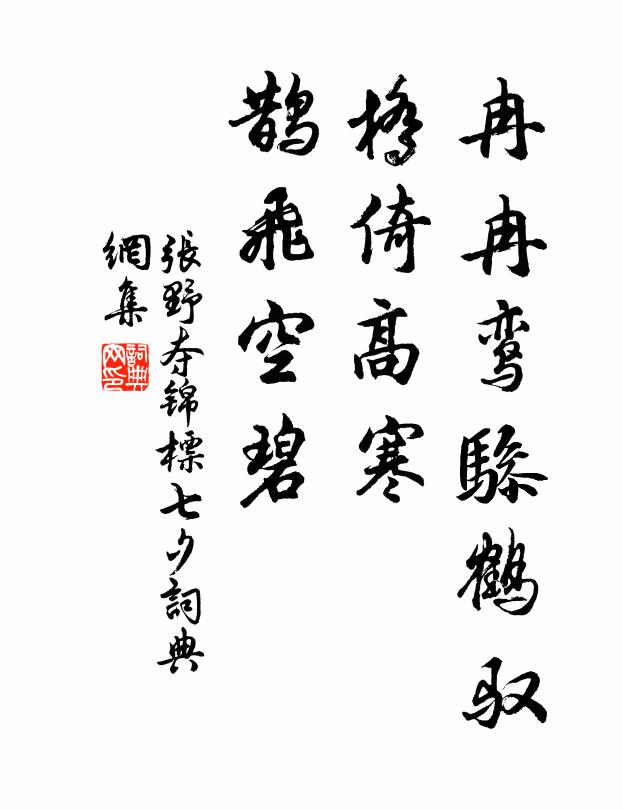 冉冉鸾驂鹤驭
橋倚高寒
鹊飛空碧
張野夺锦標七夕詞典
網集
詞典
网印